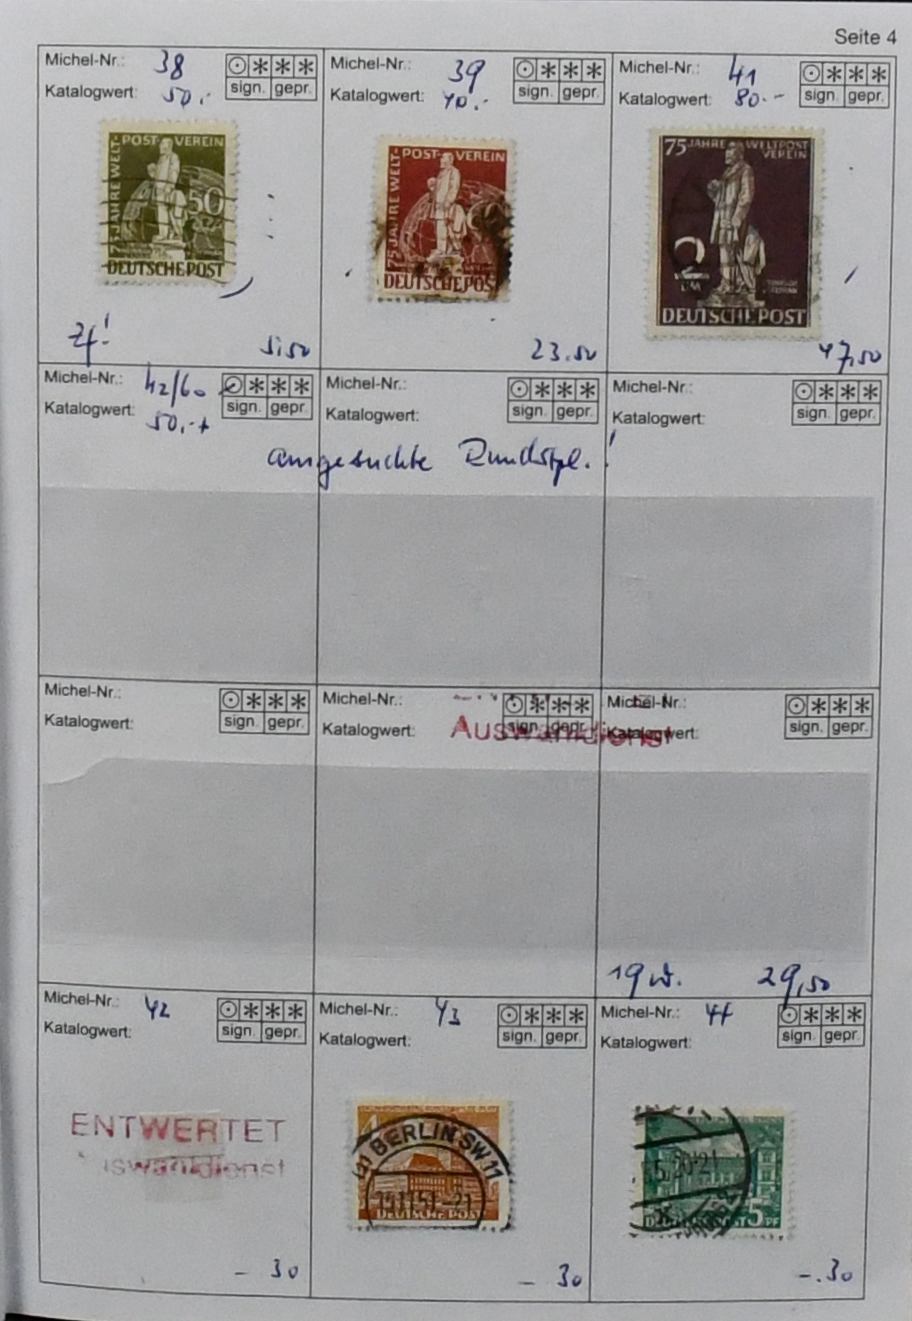 Seite 4
Michel-Nr.: 38
Katalogwert: 50.-
sign. gepr.
75 JAHRE WELT-POST VEREIN
50
DEUTSCHE POST
5,50
Michel-Nr.: 39
Katalogwert: 40.-
sign. gepr.
75 JAHRE WELT-POST VEREIN
DEUTSCHE POST
23.50
Michel-Nr.: 41
Katalogwert: 80.-
sign. gepr.
75 JAHRE WELTPOST
VEREIN
2
DM
DEUTSCHE POST
47,50
Michel-Nr.: 42/60
Katalogwert: 50,-+
sign. gepr.
Michel-Nr.:
Katalogwert:
sign. gepr.
Michel-Nr.:
Katalogwert:
sign. gepr.
ausgesuchte Rundstpl.!
Michel-Nr.:
Katalogwert:
sign. gepr.
Michel-Nr.:
Katalogwert:
sign. gepr.
Auswahldienst
Michel-Nr.:
Katalogwert:
sign. gepr.
19 W. 29,50
Michel-Nr.: 42
Katalogwert:
sign. gepr.
ENTWERTET
Auswahldienst
-30
Michel-Nr.: 43
Katalogwert:
sign. gepr.
BERLIN SW 11
DEUTSCHE POST
-30
Michel-Nr.: 44
Katalogwert:
sign. gepr.
5 PF
-.30